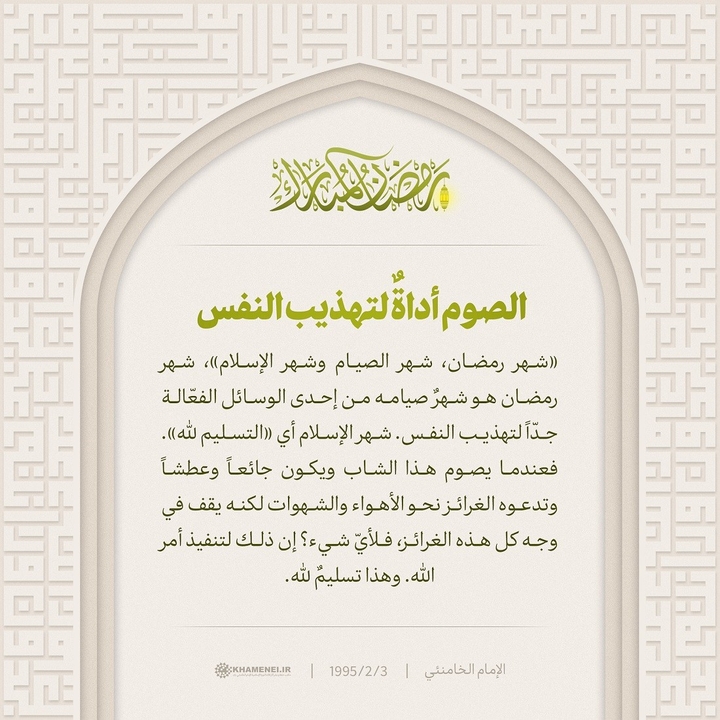 رمضان المبارك
الصوم أداةٌ لتهذيب النفس
«شهر رمضان، شهر الصيام وشهر الإسلام»، شهر
رمضان هو شهرٌ صيامه من إحدى الوسائل الفعّالة
جدّاً لتهذيب النفس. شهر الإسلام أي «التسليم لله».
فعندما يصوم هذا الشاب ويكون جائعاً وعطشاً
وتدعوه الغرائز نحو الأهواء والشهوات لكنه يقف في
وجه كل هذه الغرائز، فلأيّ شيء؟ إن ذلك لتنفيذ أمر
الله. وهذا تسليمٌ لله.
الإمام الخامنئي | 1995/2/3 | KHAMENEI.IR